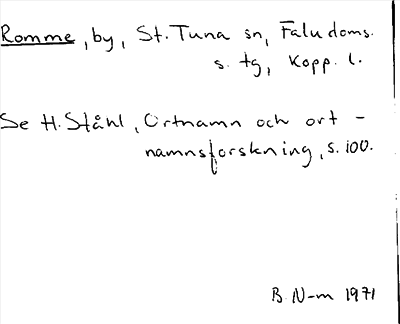 Romme, by, St. Tuna sn, Faludoms.
s. tg, Kopp. l.
Se H. Ståhl, Ortnamn och ort-
namnsforskning, s. 100.
B. N-m 1971